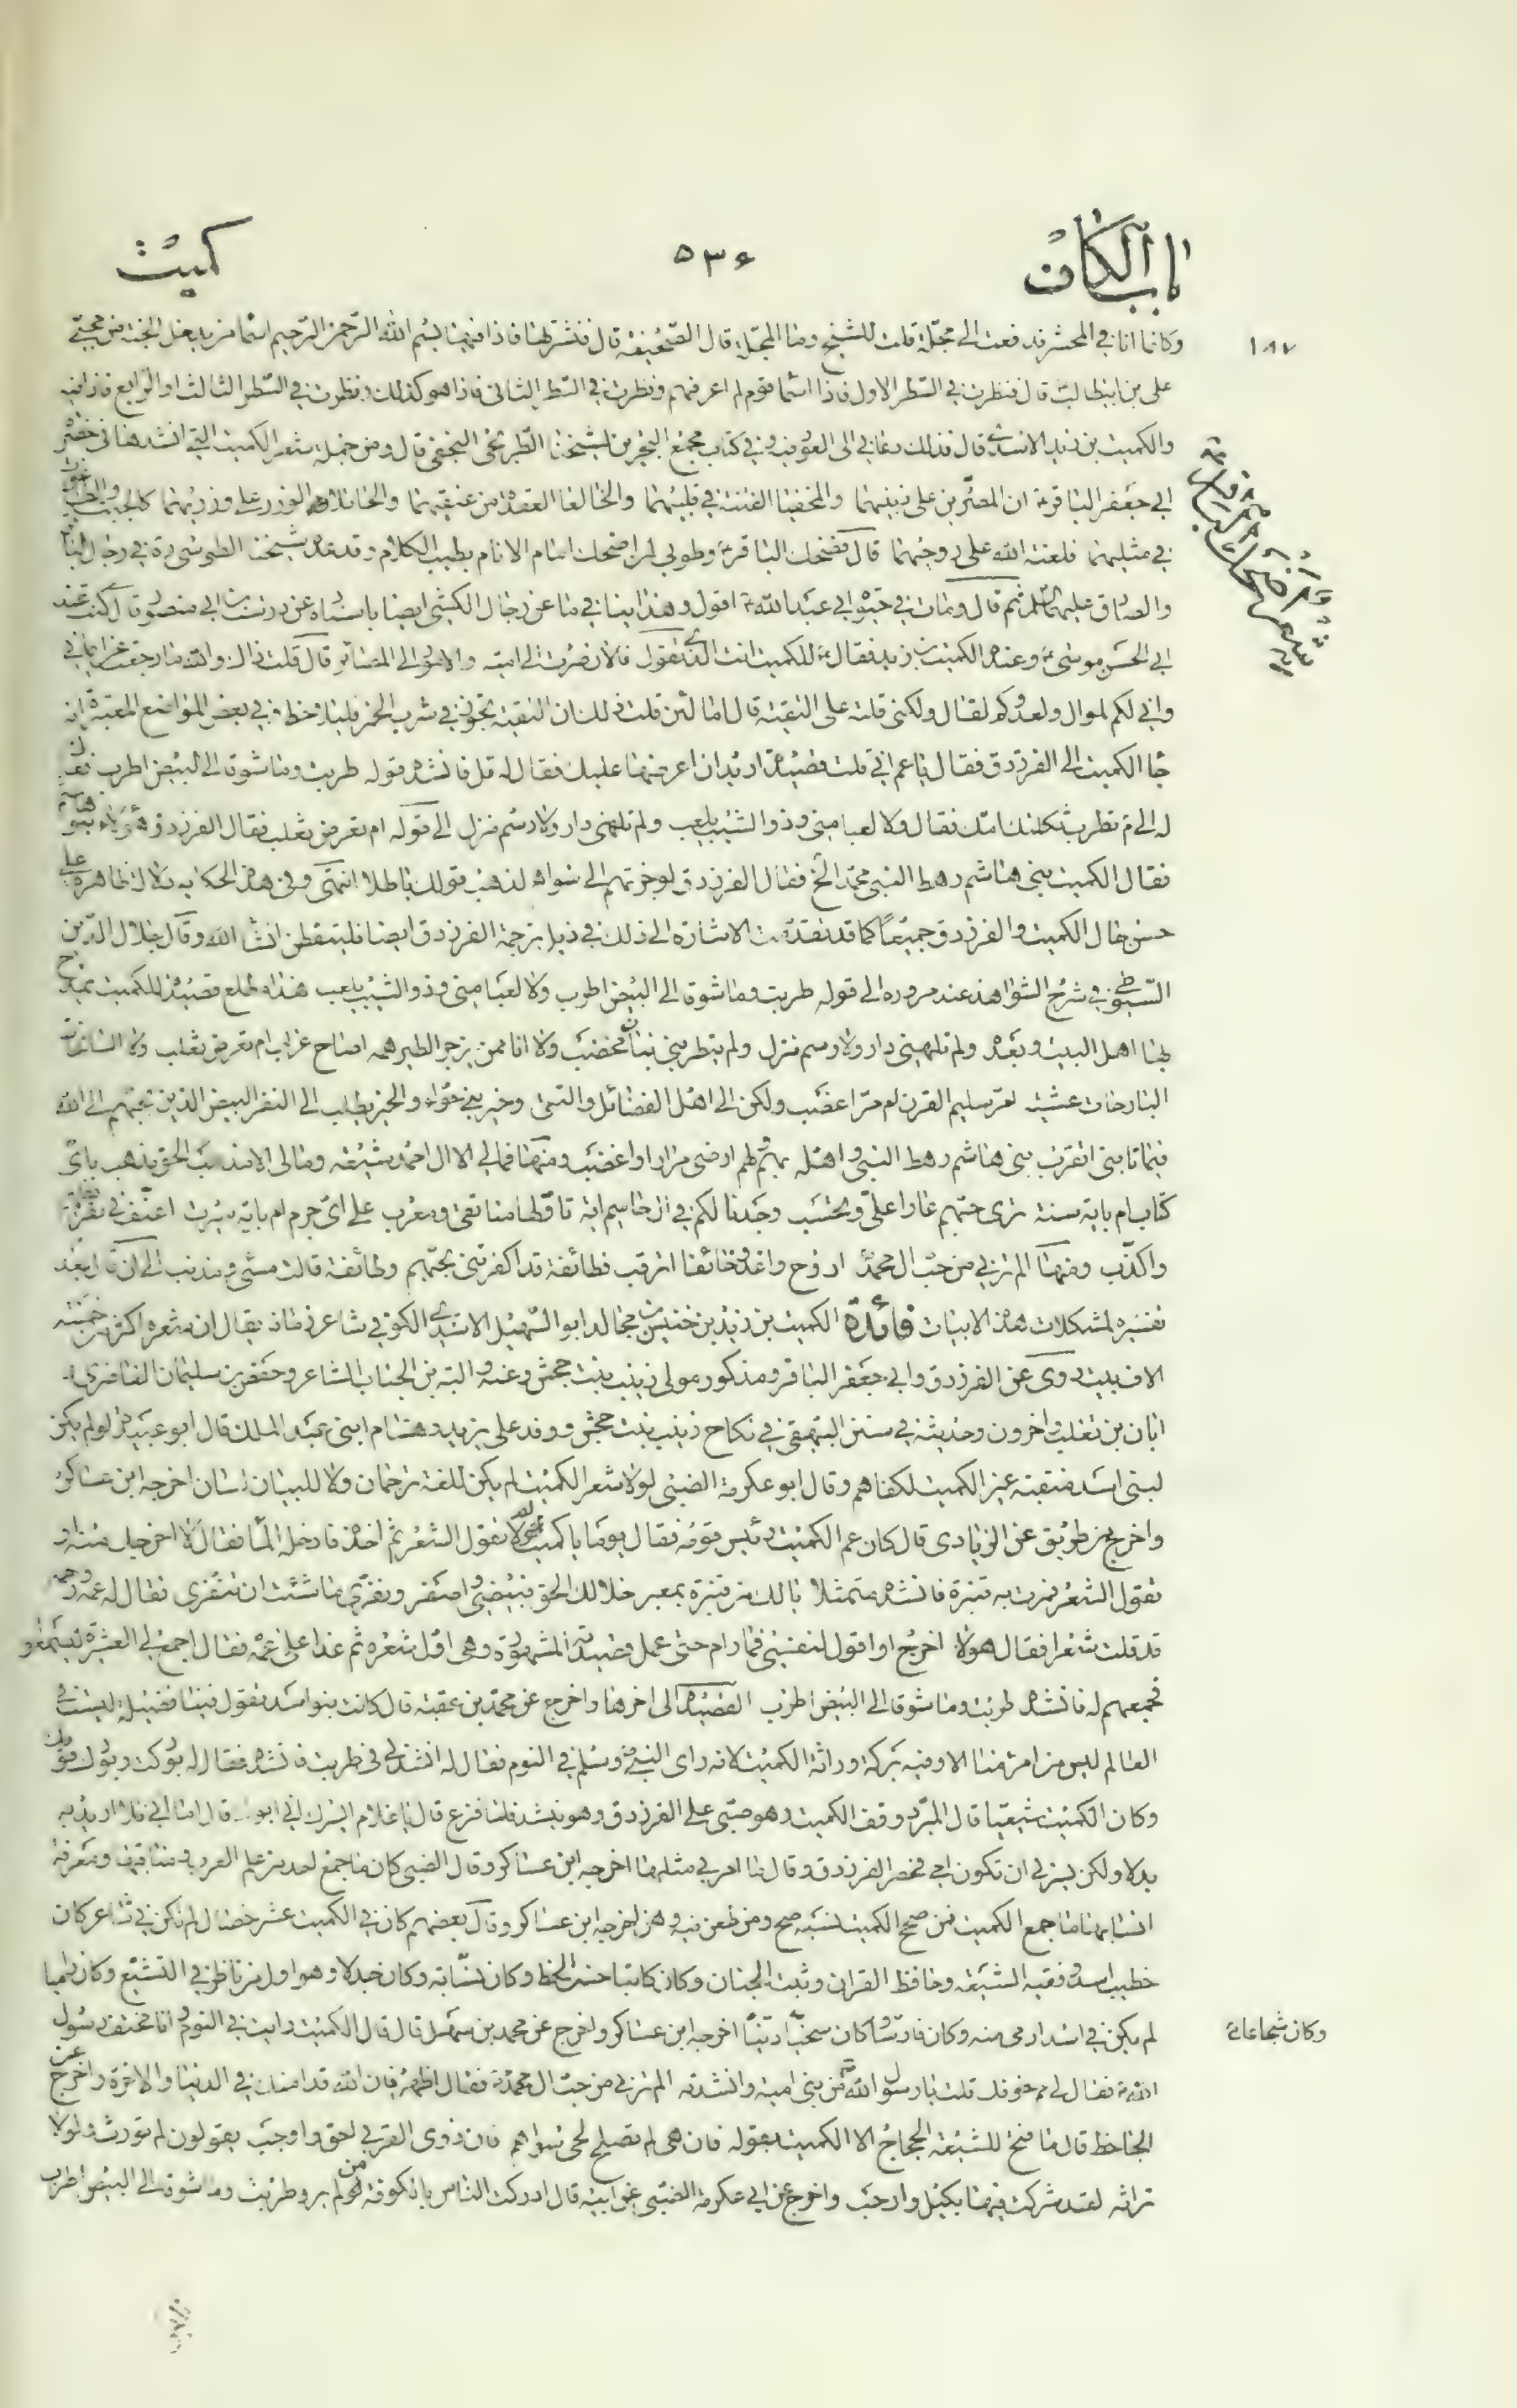 باب الكاف
٥٣٤
كميت
١٨٧
وكانما انا في المحشر فدفعت الى مجلة قلت للشيخ وما المجلة قال الصحيفة قال فنشرتها فاذا فيها بسم الله الرحمن الرحيم اسما من يدخل الجنة من محبي
على بن ابيطالب قال فنظرت في السطر الاول فاذا اسما قوم لم اعرفهم ونظرت في السطر الثانى فاذا هو كذلك ونظرت في السطر الثالث او الرابع فاذا فيه
والكميت بن زيد الاسدى قال فذلك دعانى الى العود فيه وفى كتاب مجمع البحرين لشيخنا الطريحى النجفى قال ومن جملة شعر الكميت التي انشدها في حضرة
ابي جعفر الباقر ان المصرين على ذنبيهما والمخفيا الفتنة في قلبيهما والخالعا العقدة من عنقيهما والحاملا الوزر على وزريهما كالجبت والطاغوت
في مثليهما فلعنة الله على روحيهما قال فضحك الباقر وطوبى لمن اضحك امام الانام بطيب الكلام وقد عده شيخنا الطوسى ره في رجال الباقر
والصادق عليهما السلم ثم قال ومات في حيوة ابي عبد الله اقول وهذا ينافي ما عن رجال الكشى ايضا باسناده عن درست بن ابى منصور قال كنت عند
ابي الحسن موسى وعنده الكميت بن زيد فقال للكميت انت الذى تقول فالان صرت الى امية والامور الى المصائر قال قلت ذاك والله ما رجعت عن ايمانى
وانى لكم لموال ولعدوكم لقال ولكنى قلته على التقية قال اما لئن قلت ذلك ان التقية تجوز في شرب الخمر فليلاحظ وفى بعض المواضع المعتبرة انه
جا الكميت الى الفرزدق فقال يا عم انى قلت قصيدة اريد ان اعرضها عليك فقال له قل فانشده قوله طربت وما شوقا الى البيض اطرب فقال
له الى م تطرب ثكلتك امك فقال ولا لعبا منى وذو الشيب يلعب ولم تلهنى دار ولا رسم منزل الى قوله ام تعرض ثعلب فقال الفرزدق هؤلاء بنو هاشم
فقال الكميت بنى هاشم رهط النبى محمد الخ فقال الفرزدق لو جزتهم الى سواهم لذهب قولك باطلا انتهى وفى هذه الحكاية دلالة ظاهرة على
حسن حال الكميت والفرزدق جميعا كما قد تقدمت الاشارة الى ذلك في ذيل ترجمة الفرزدق ايضا فليتفطن انشا الله وقال جلال الدين
السيوطى في شرح الشواهد عند مروره الى قوله طربت وما شوقا الى البيض اطرب ولا لعبا منى وذو الشيب يلعب هذا مطلع قصيدة للكميت يمدح
بها اهل البيت وبعده ولم تلهينى دار ولا رسم منزل ولم يتطربنى بنان مخضب ولا انا ممن يزجر الطير همه اصاح غراب ام تعرض ثعلب ولا السانحات
البارحات عشية امر سليم القرن ام مر اعضب ولكن الى اهل الفضائل والتقى وخير بنى حواء والخير يطلب الى النفر البيض الذين بحبهم الى الله
فيما نابنى اتقرب بنى هاشم رهط النبى واهله بهم ولهم ارضى مرارا واغضب ومنها فمالى الا ال احمد شيعة ومالى الا مذهب الحق مذهب باى
كتاب ام باية سنة ترى حبهم عارا على وتحسب وجدنا لكم في ال حاميم اية تاولها منا تقى ومعرب على اى جرم ام باية سيرة اعنف في تقريظهم
واكذب ومنها الم ترنى من حب ال محمد اروح واغدو خائفا اترقب فطائفة قد اكفرتنى بحبهم وطائفة قالت مسئ ومذنب الى ان قال بعد
تفسيره لمشكلات هذه الابيات فائدة الكميت بن زيد بن خنيس بن مجالد ابو السهيل الاسدى الكوفى شاعر زمانه يقال ان شعره اكثر من خمسة
الاف بيت روى عن الفرزدق وابى جعفر الباقر ومذكور مولى زينب بنت جحش وعنه والبة بن الحباب الشاعر وحفص بن سليمان الغاضرى
ابان بن تغلب واخرون وحديثه في سنن البيهقى في نكاح زينب بنت جحش ووفد على يزيد وهشام ابنى عبد الملك قال ابو عبيدة لو لم يكن
لبنى اسد منقبة غير الكميت لكفاهم وقال ابو عكرمة الضبى لولا شعر الكميت لم يكن للغة ترجمان ولا للبيان لسان اخرجه ابن عساكر
واخرج من طريق عن الزيادى قال كان عم الكميت رئيس قومه فقال يوما يا كميت لم لا تقول الشعر ثم اخذه فادخله الما فقال لا اخرجك منه او
تقول الشعر فمرت به قنبرة فانشده متمثلا يا لك من قنبرة بمعمر خلا لك الجو فبيضى واصفرى ونقرى ما شئت ان تنقرى فقال له عمه ورحمه
قد قلت شعرا فقال هو لا اخرج او اقول لنفسى فما رام حتى عمل قصيدته المشهورة وهى اول شعره ثم غدا على عمه فقال اجمع لى العشيرة ليسمعوا
فجمعهم له فانشده طربت وما شوقا الى البيض اطرب القصيدة الى اخرها واخرج عن محمد بن عقبة قال كانت بنو اسد تقول فينا فضيلة ليست في
العالم ليس من امرء منا الا وفيه بركة وراثة الكميت لانه راى النبى وسلم في النوم فقال له انشدنى طربت فانشده فقال له بوركت وبورك قومك
وكان الكميت شيعيا قال المبرد وقف الكميت وهو صبى على الفرزدق وهو ينشد فلما فرغ قال يا غلام ايسرك انى ابوك قال اما ابى فلا اريد به
بدلا ولكن يسرنى ان تكون امى فحصر الفرزدق وقال ما مر بى مثلها اخرجه ابن عساكر وقال الضبى كان ما جمع احد من علم العرب ومناقبها ومعرفة
انسابها ما جمع الكميت فمن صحح الكميت نسبه صح ومن طعن فيه وهن اخرجه ابن عساكر وقال بعضهم كان في الكميت عشر خصال لم تكن في شاعر كان
خطيب اسد وفقيه الشيعة وحافظ القران وثبت الجنان وكان كاتبا حسن الخط وكان نسابة وكان جدلا وهو اول من ناظر في التشيع وكان راميا
لم يكن في اسد ارمى منه وكان فارسا وكان سخيا دينا اخرجه ابن عساكر واخرج عن محمد بن سهل قال قال الكميت رايت في النوم وانا مختف رسول
وكان شجاعا
الله فقال لى مم خوفك قلت يا رسول الله من بنى امية وانشدته الم ترنى من حب ال محمد فقال اظهر فان الله قد امنك في الدنيا والاخرة واخرج عن
الجاحظ قال ما فتح للشيعة الحجاج الا الكميت بقوله فان هى لم تصلح لحى سواهم فان ذوى القربى احق واوجب يقولون لم يورث ولولا
تراثه لقد شركت فيها بكيل وارحب واخرج عن ابى عكرمة الضبى عن ابيه قال ادركت الناس بالكوفة من لم يرو طربت وما شوقا الى البيض اطرب